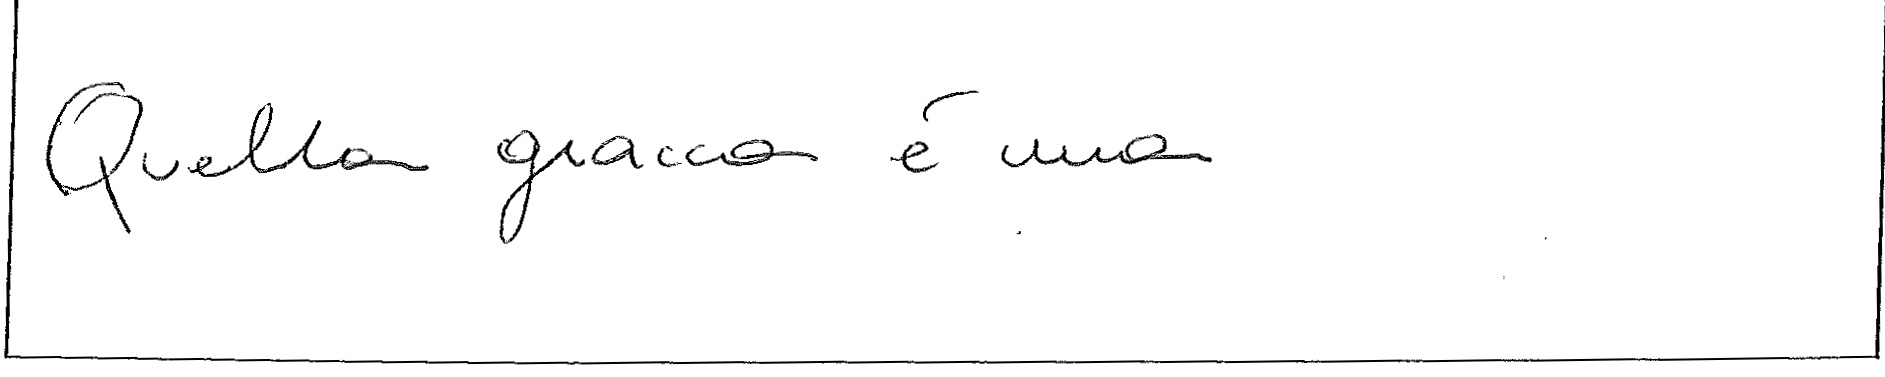 Quella giacca é mia